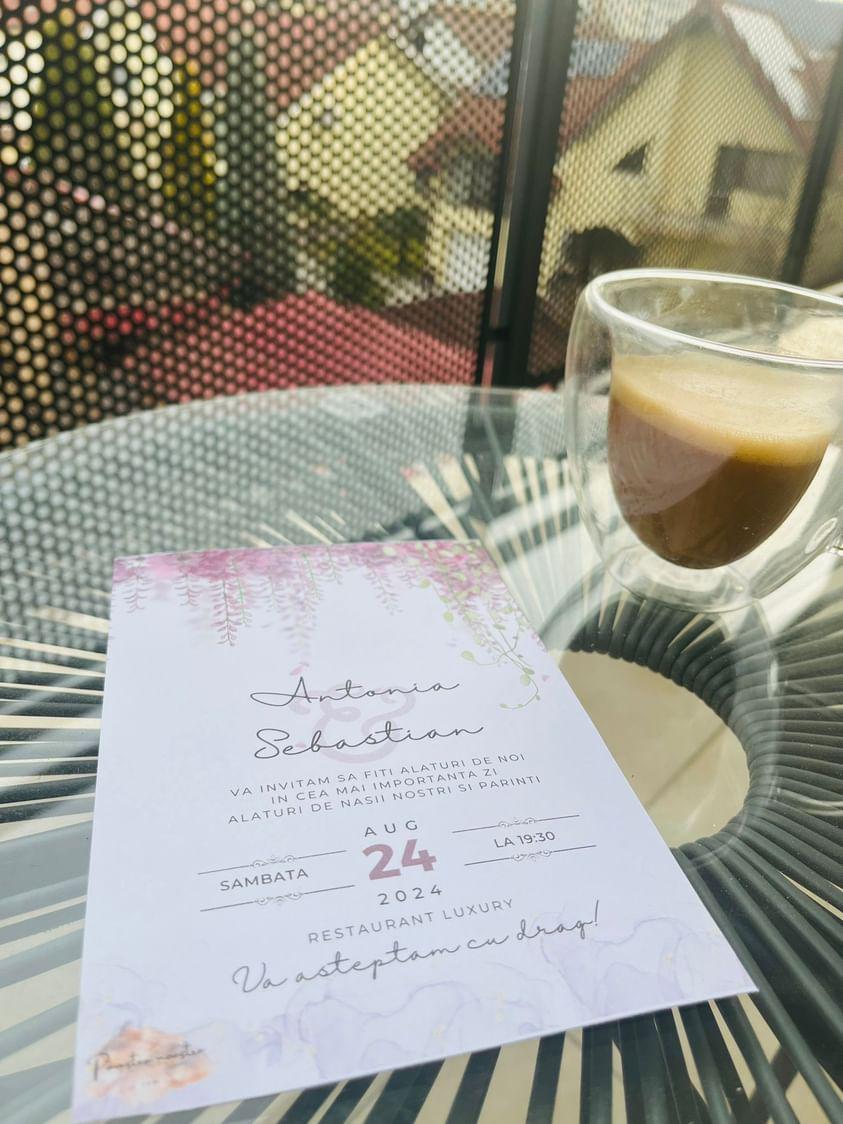 Antonia
&
Sebastian
VA INVITAM SA FITI ALATURI DE NOI
IN CEA MAI IMPORTANTA ZI
ALATURI DE NASII NOSTRI SI PARINTI
AUG
SAMBATA 24 LA 19:30
2024
RESTAURANT LUXURY
Va asteptam cu drag!